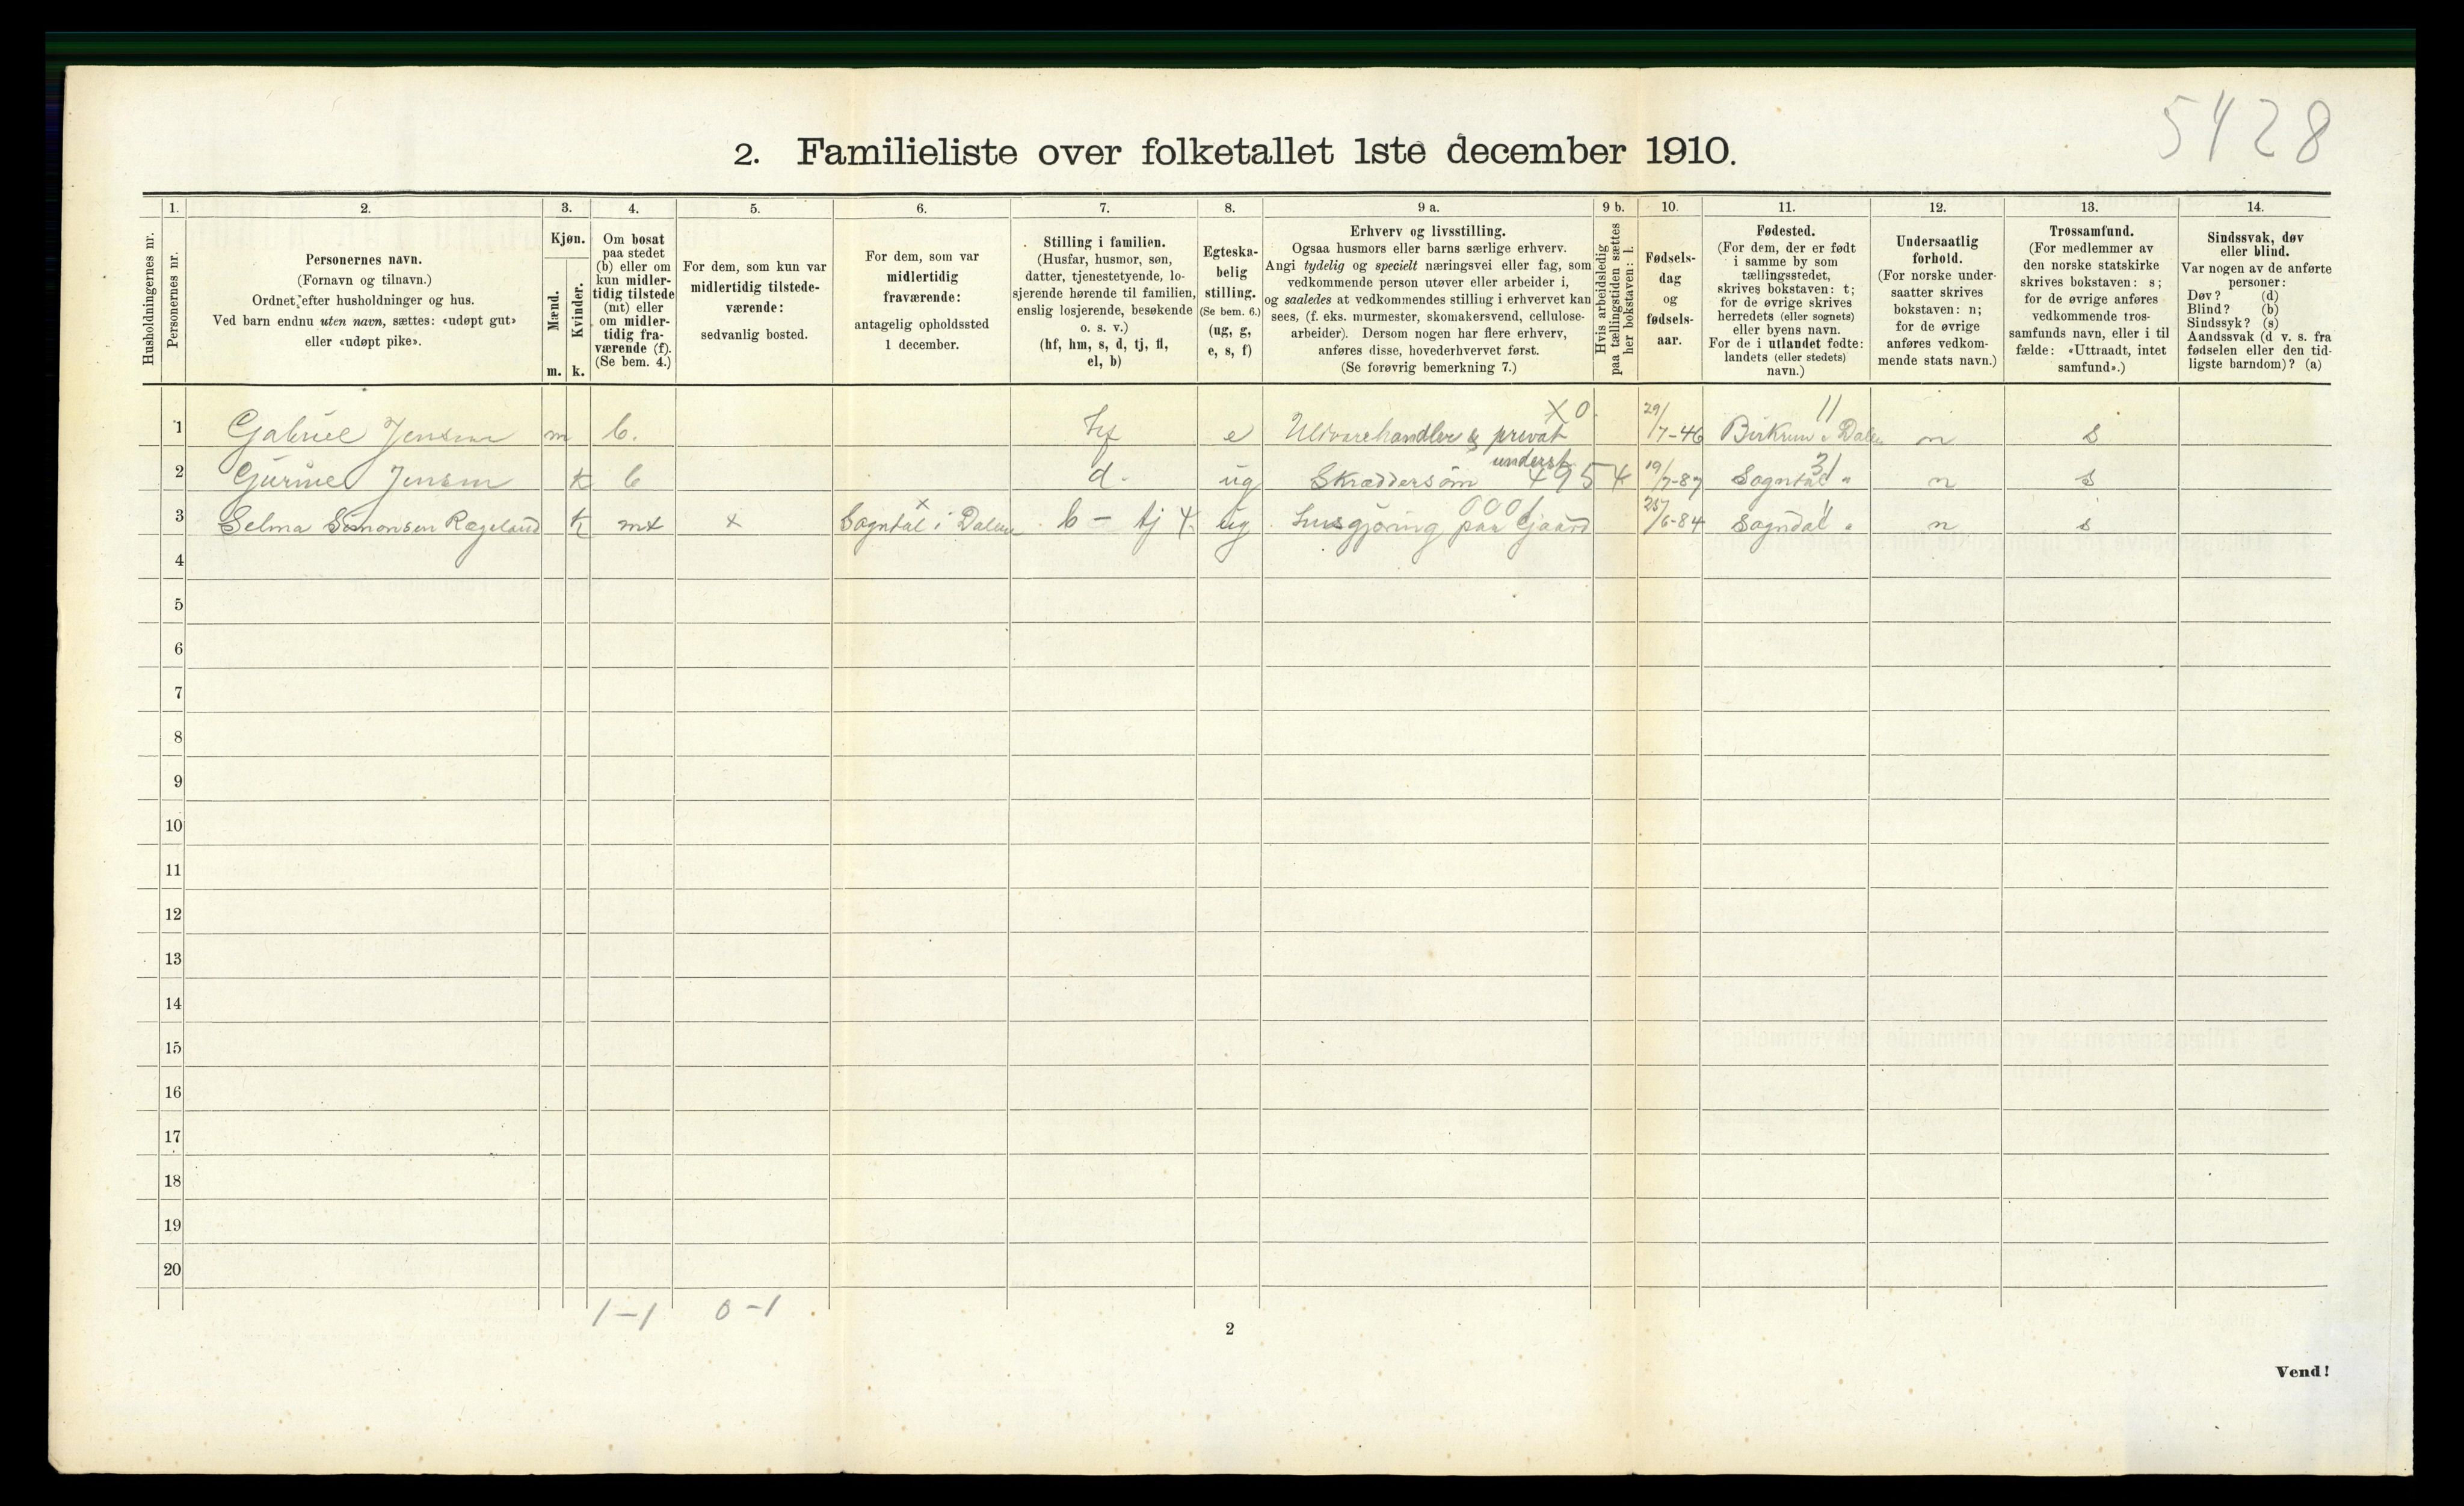 5428
2. Familieliste over folketallet 1ste december 1910.
Husholdningernes nr.
1. Personernes nr.
2. Personernes navn. (Fornavn og tilnavn.) Ordnet efter husholdninger og hus. Ved barn endnu uten navn, sættes: «udøpt gut» eller «udøpt pike».
3. Kjøn. Mænd. m. Kvinder. k.
4. Om bosat paa stedet (b) eller om kun midlertidig tilstede (mt) eller om midlertidig fraværende (f). (Se bem. 4.)
5. For dem, som kun var midlertidig tilstedeværende: sedvanlig bosted.
6. For dem, som var midlertidig fraværende: antagelig opholdssted 1 december.
7. Stilling i familien. (Husfar, husmor, søn, datter, tjenestetyende, losjerende hørende til familien, enslig losjerende, besøkende o. s. v.) (hf, hm, s, d, tj, fl, el, b)
8. Egteskabelig stilling. (Se bem. 6.) (ug, g, e, s, f)
9 a. Erhverv og livsstilling. Ogsaa husmors eller barns særlige erhverv. Angi tydelig og specielt næringsvei eller fag, som vedkommende person utøver eller arbeider i, og saaledes at vedkommendes stilling i erhvervet kan sees, (f. eks. murmester, skomakersvend, cellulosearbeider). Dersom nogen har flere erhverv, anføres disse, hovederhvervet først. (Se forøvrig bemerkning 7.)
9 b. Hvis arbeidsledig paa tællingstiden sættes her bokstaven: l.
10. Fødselsdag og fødselsaar.
11. Fødested. (For dem, der er født i samme by som tællingsstedet, skrives bokstaven: t; for de øvrige skrives herredets (eller sognets) eller byens navn. For de i utlandet fødte: landets (eller stedets) navn.)
12. Undersaatlig forhold. (For norske undersaatter skrives bokstaven: n; for de øvrige anføres vedkommende stats navn.)
13. Trossamfund. (For medlemmer av den norske statskirke skrives bokstaven: s; for de øvrige anføres vedkommende trossamfunds navn, eller i tilfælde: «Uttraadt, intet samfund».)
14. Sindssvak, døv eller blind. Var nogen av de anførte personer: Døv? (d) Blind? (b) Sindssyk? (s) Aandssvak (d. v. s. fra fødselen eller den tidligste barndom)? (a)
1 Gabriel Jensen m b. hf e Uldvarehandler & privat underst X0. 29/7-46 Birkrem i Dalen 11 n s
2 Gurine Jensen k b d. ug Skræddersøm 495 4 19/7-87 Sogndal " 31 n s
3 Selma Simonsen Rægeland k mt x x Sogndal i Dalen b - tj 4 ug Husgjøring paa Gjaard 0001 25/6-84 Sogndal " n s
4
5
6
7
8
9
10
11
12
13
14
15
16
17
18
19
20
1-1 0-1
2
Vend!